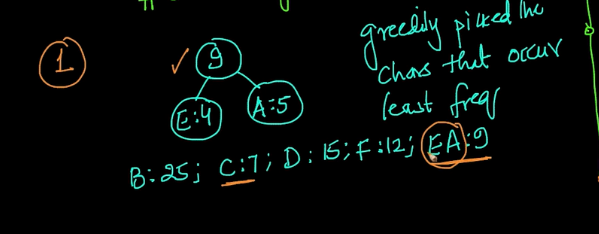 greedily picked the
chars that occur
least freq
1
9
E:4 A:5
B:25; C:7; D:15; F:12; EA:9